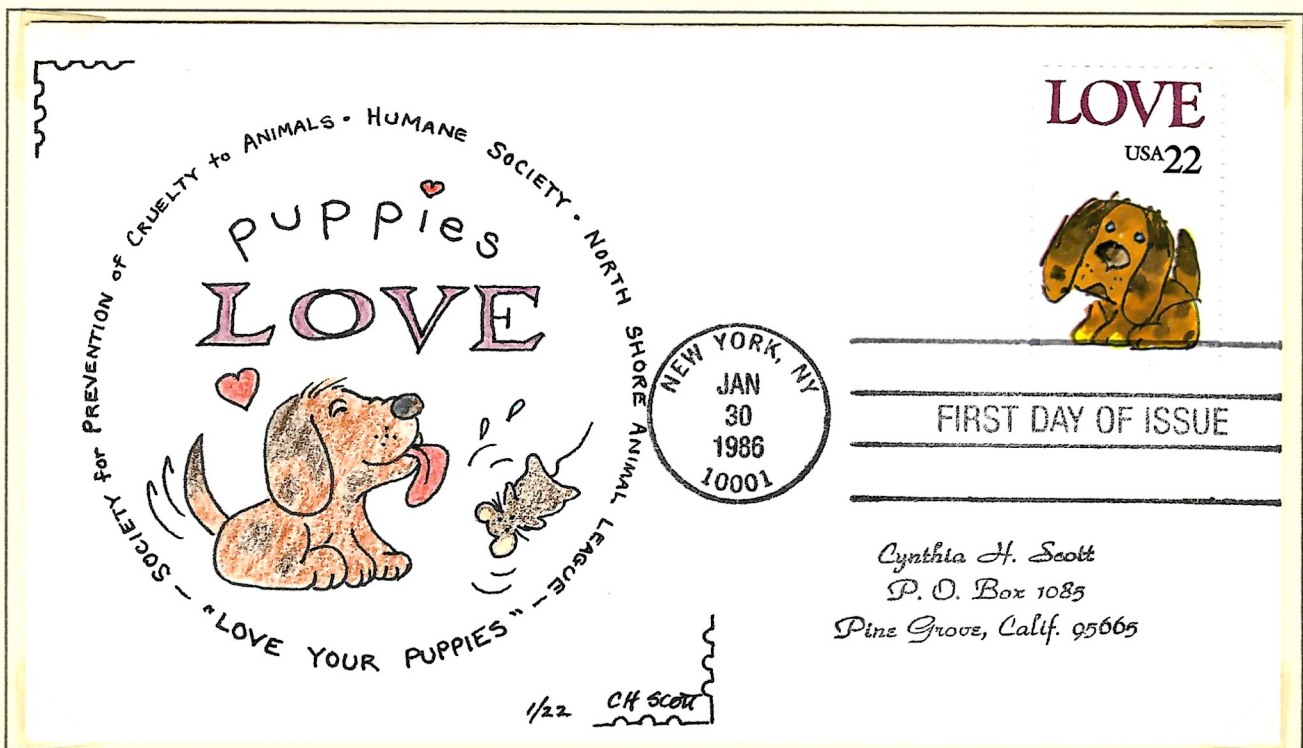 SOCIETY for PREVENTION of CRUELTY to ANIMALS · HUMANE SOCIETY · NORTH SHORE ANIMAL LEAGUE ~ "LOVE YOUR PUPPIES" ~
puppies
LOVE
1/22 CH Scott
LOVE
USA22
NEW YORK, NY
JAN
30
1986
10001
FIRST DAY OF ISSUE
Cynthia H. Scott
P. O. Box 1085
Pine Grove, Calif. 95665